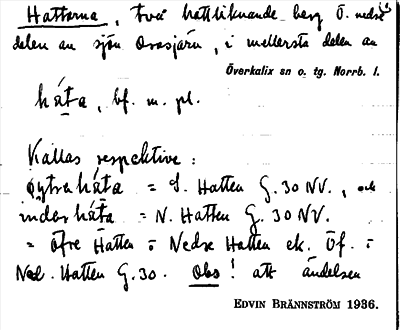 Hattarna, två hattliknande berg ö. nedre
delen av sjön Orasjärv, i mellersta delen av
Överkalix sn o. tg. Norrb. l.
håta, bf. m. pl.
Kallas respektive:
øytrahåta = S. Hatten G. 30 NV., och
inderhåta = N. Hatten G. 30 NV.
= Öfre Hatten o Nedre Hatten ek. Öf. o
Ned. Hatten G. 30. Obs! att ändelsen
EDVIN BRÄNNSTRÖM 1936.